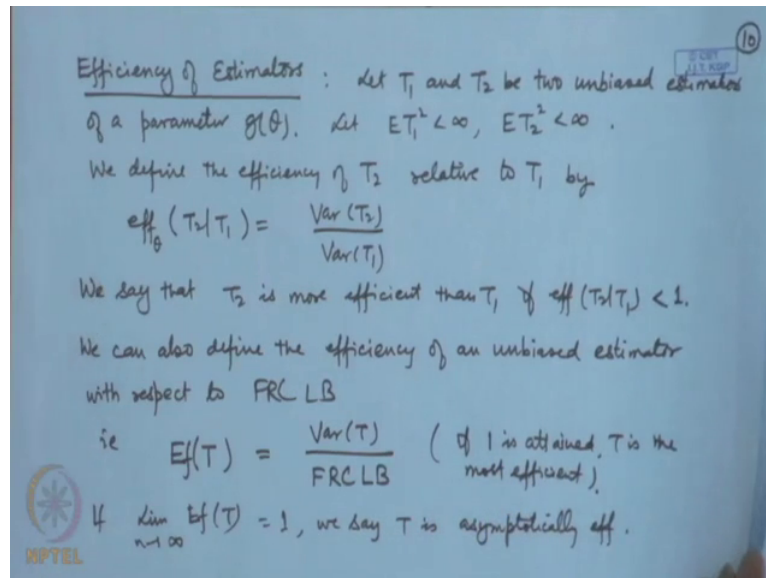 10
© CET
I.I.T. KGP
Efficiency of Estimators : Let T₁ and T₂ be two unbiased estimators
of a parameter g(θ). Let ET₁² < ∞, ET₂² < ∞ .
We define the efficiency of T₂ relative to T₁ by
eff_θ (T₂|T₁) = Var (T₂) / Var (T₁)
We say that T₂ is more efficient than T₁ if eff (T₂|T₁) < 1.
We can also define the efficiency of an unbiased estimator
with respect to FRC LB
ie Ef(T) = Var (T) / FRC LB ( If 1 is attained, T is the
most efficient ).
If lim n→∞ Ef (T) = 1, we say T is asymptotically eff.
NPTEL